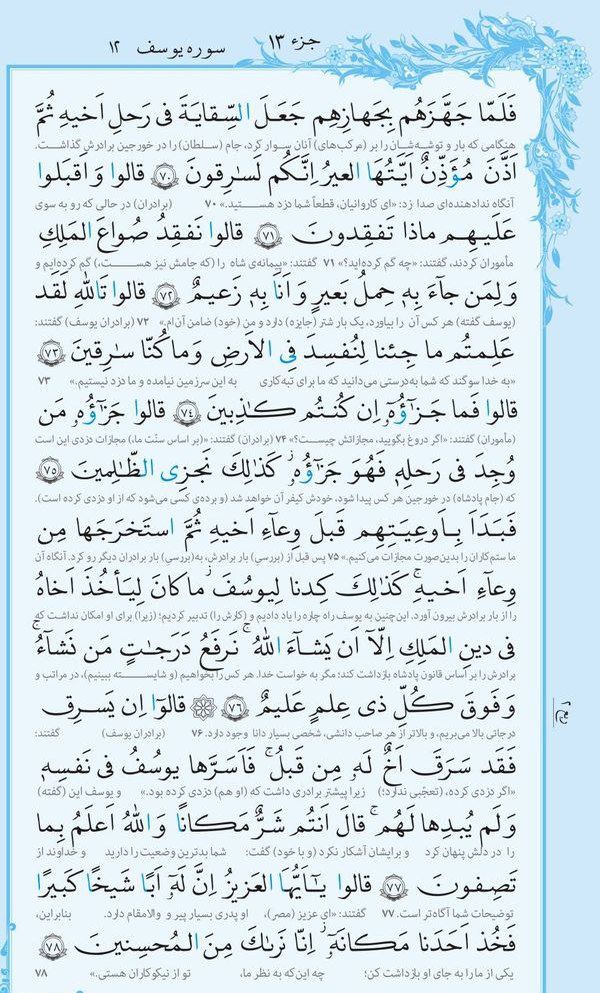 جزء ۱۳
سوره یوسف ۱۲
فَلَمّا جَهَّزَهُم بِجَهازِهِم جَعَلَ السِّقایَةَ فی رَحلِ اَخیهِ ثُمَّ
هنگامی که بار و توشه‌شان را بر (مرکب‌های) آنان سوار کرد، جام (سلطان) را در خورجین برادرش گذاشت.
اَذَّنَ مُؤَذِّنٌ اَیَّتُهَا العیرُ اِنَّکُم لَسارِقونَ ﴿۷۰﴾ قالوا وَ اَقبَلوا
آنگاه ندادهنده‌ای صدا زد: «ای کاروانیان، قطعاً شما دزد هستید.» ۷۰ (برادران) در حالی که رو به سوی
عَلَیهِم ماذا تَفقِدونَ ﴿۷۱﴾ قالوا نَفقِدُ صُواعَ المَلِکِ
مأموران کردند، گفتند: «چه گم کرده‌اید؟» ۷۱ گفتند: «پیمانه‌ی شاه را (که جامش نیز هست،) گم کرده‌ایم و
وَ لِمَن جآءَ بِهٖ حِملُ بَعیرٍ وَ اَنَا بِهٖ زَعیمٌ ﴿۷۲﴾ قالوا تَاللهِ لَقَد
(یوسف گفته) هر کس آن را بیاورد، یک بار شتر (جایزه) دارد و من (خود) ضامن آن‌ام.» ۷۲ (برادران یوسف) گفتند:
عَلِمتُم ما جِئنا لِنُفسِدَ فِی الاَرضِ وَ ما کُنّا سارِقینَ ﴿۷۳﴾
«به خدا سوگند که شما به‌درستی می‌دانید که ما برای تبه‌کاری به این سرزمین نیامده و ما دزد نیستیم.» ۷۳
قالوا فَما جَزآؤُهٗ اِن کُنتُم کاذِبینَ ﴿۷۴﴾ قالوا جَزآؤُهٗ مَن
(مأموران) گفتند: «اگر دروغ بگویید، مجازاتش چیست؟» ۷۴ (برادران) گفتند: «(بر اساس سنّت ما،) مجازات دزدی این است
وُجِدَ فی رَحلِهٖ فَهُوَ جَزآؤُهٗ کَذالِکَ نَجزِی الظّالِمینَ ﴿۷۵﴾
که (جام پادشاه) در خورجین هر کس پیدا شود، خودش کیفر آن خواهد شد (و برده‌ی کسی می‌شود که از او دزدی کرده است).
فَبَدَاَ بِاَوعِیَتِهِم قَبلَ وِعآءِ اَخیهِ ثُمَّ استَخرَجَها مِن
ما ستم‌کاران را بدین صورت مجازات می‌کنیم.» ۷۵ پس قبل از (بررسی) بار برادرش، به (بررسی) بار برادران دیگر رو کرد. آنگاه آن
وِعآءِ اَخیهِ کَذالِکَ کِدنا لِیوسُفَ ما کانَ لِیَأخُذَ اَخاهُ
را از بار برادرش بیرون آورد. این‌چنین به یوسف راه چاره را یاد دادیم و (کارش را) تدبیر کردیم؛ (زیرا) برای او امکان نداشت که
فی دینِ المَلِکِ اِلّآ اَن یَشآءَ اللهُ نَرفَعُ دَرَجاتٍ مَن نَشآءُ
برادرش را بر اساس قانون پادشاه بازداشت کند؛ مگر به خواست خدا. هر کس را بخواهیم (و شایسته ببینیم)، در مراتب و
وَ فَوقَ کُلِّ ذی عِلمٍ عَلیمٌ ﴿۷۶﴾ قالوا اِن یَسرِق
درجاتی بالا می‌بریم، و بالاتر از هر صاحب دانشی، شخصی بسیار دانا وجود دارد. ۷۶ (برادران یوسف) گفتند:
فَقَد سَرَقَ اَخٌ لَهٗ مِن قَبلُ فَاَسَرَّها یوسُفُ فی نَفسِهٖ
«اگر دزدی کرده، (تعجّبی ندارد؛) زیرا پیشتر برادری داشت که (او هم) دزدی کرده بود.» و یوسف این (گفته)
وَ لَم یُبدِها لَهُم قالَ اَنتُم شَرٌّ مَکانًا وَ اللهُ اَعلَمُ بِما
را در دلش پنهان کرد و برایشان آشکار نکرد (و با خود) گفت: شما بدترین وضعیت را دارید و خداوند از
تَصِفونَ ﴿۷۷﴾ قالوا یآ اَیُّهَا العَزیزُ اِنَّ لَهٗ اَبًا شَیخًا کَبیرًا
توضیحات شما آگاه‌تر است. ۷۷ گفتند: «ای عزیز (مصر)، او پدری بسیار پیر و والامقام دارد. بنابراین،
فَخُذ اَحَدَنا مَکانَهٗ اِنّا نَراکَ مِنَ المُحسِنینَ ﴿۷۸﴾
یکی از ما را به جای او بازداشت کن؛ چه این‌که به نظر ما، تو از نیکوکاران هستی.» ۷۸